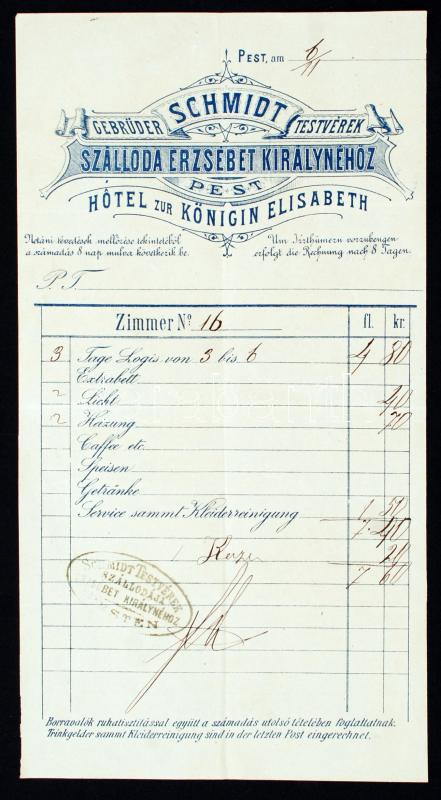 PEST, am 6/11
SCHMIDT
GEBRÜDER TESTVÉREK
SZÁLLODA ERZSÉBET KIRÁLYNÉHOZ
PEST
HÔTEL ZUR KÖNIGIN ELISABETH
Netáni tévedések mellőzése tekintetéből Um Irrthümern vorzubeugen
a számadás 8 nap mulva következik be. erfolgt die Rechnung nach 8 Tagen.
P. T.
Zimmer No. 16 fl. kr.
3 Tage Logis von 3 bis 6 4 80
Extrabett
2 Licht 40
2 Heizung 70
Caffee etc.
Speisen
Getränke
Service sammt Kleiderreinigung 1 50
7 40
1 Kerze 20
7 60
SCHMIDT TESTVÉREK
SZÁLLODÁJA
KIRÁLYNÉHOZ
PESTEN
Borravalók ruhatisztitással együtt a számadás utolsó tételében foglaltatnak.
Trinkgelder sammt Kleiderreinigung sind in der letzten Post eingerechnet.